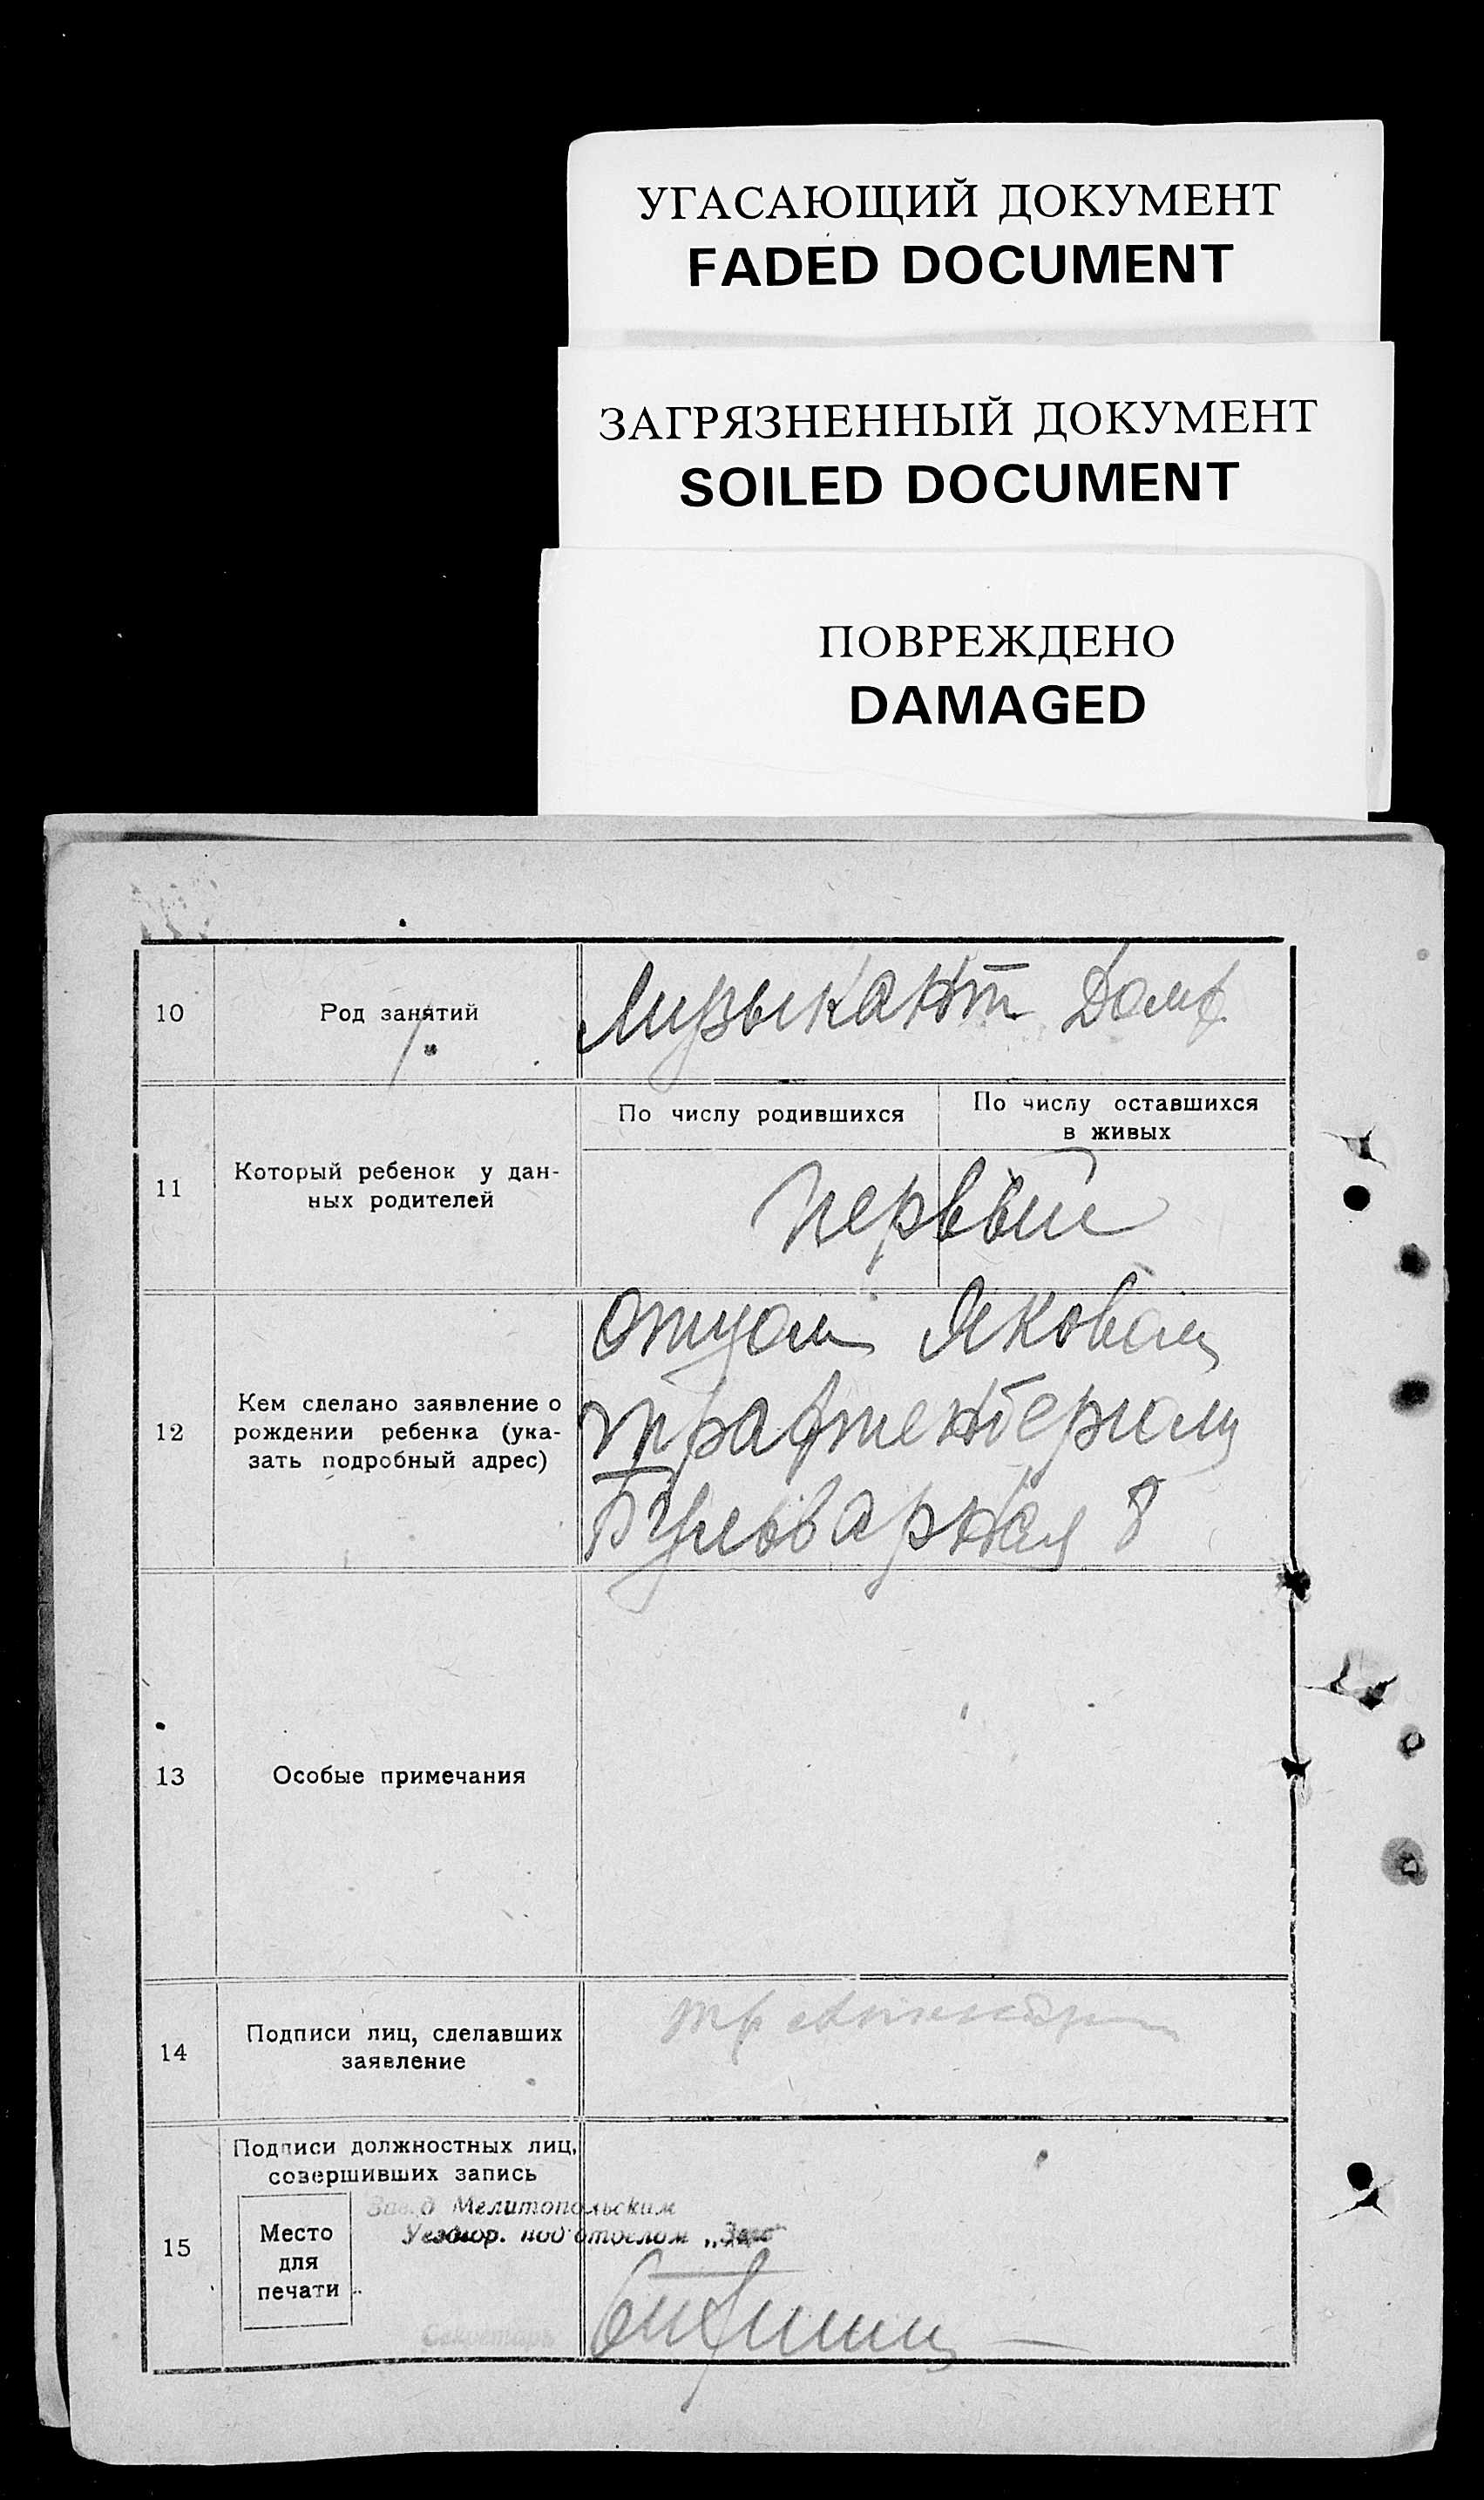 УГАСАЮЩИЙ ДОКУМЕНТ
FADED DOCUMENT
ЗАГРЯЗНЕННЫЙ ДОКУМЕНТ
SOILED DOCUMENT
ПОВРЕЖДЕНО
DAMAGED
10
Род занятий
Музыкант
11
Который ребенок у дан-
ных родителей
По числу родившихся
По числу оставшихся
в живых
первый
12
Кем сделано заявление о
рождении ребенка (ука-
зать подробный адрес)
Отцом Яковом
Трафтенбергом
Бульварная 8
13
Особые примечания
14
Подписи лиц, сделавших
заявление
15
Подписи должностных лиц,
совершивших запись
Мелитопольским
Уездгор. подотделом „Загс“
Место
для
печати
Секретарь